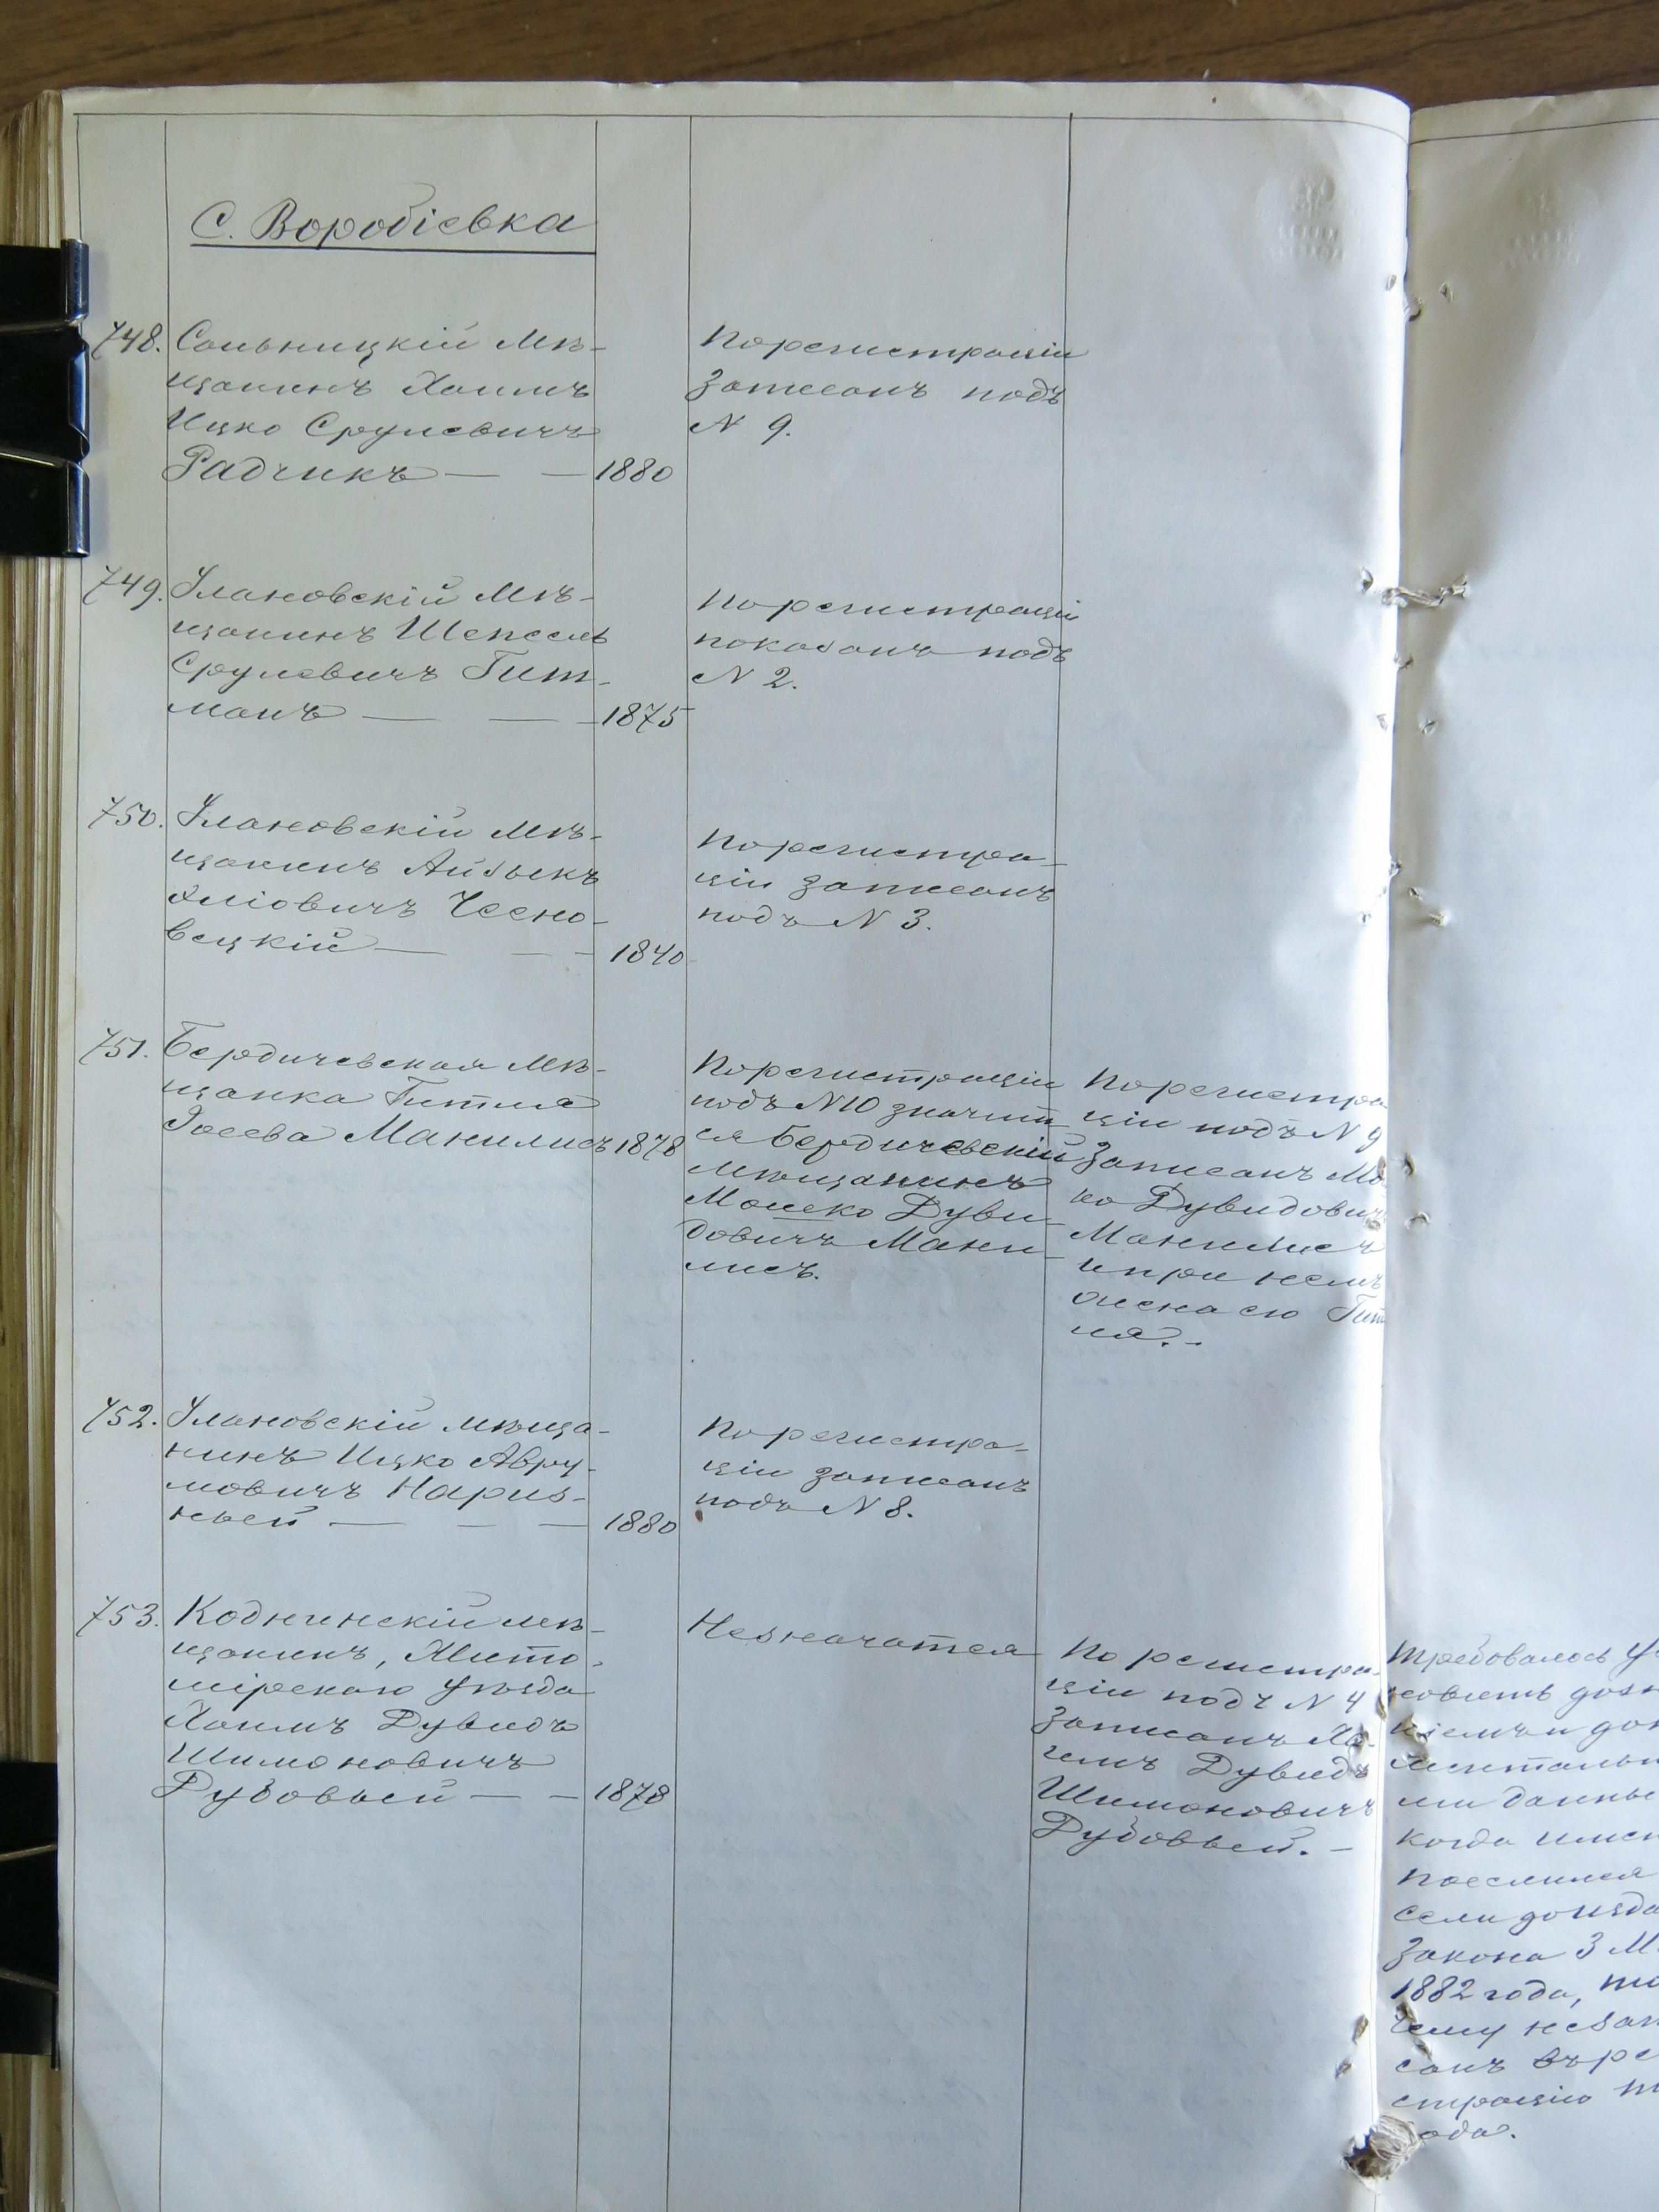 С. Воробіевка
748. Сальницкій Мѣ-
щанинъ Хаимъ
Ицко Срулевичъ
Радчикъ — — 1880
По регистраціи
записанъ подъ
N 9.
749. Улановскій Мѣ-
щанинъ Шепсель
Срулевичъ Гит-
манъ — — 1875
По регистраціи
показанъ подъ
N 2.
750. Улановскій Мѣ-
щанинъ Айзыкъ
Эліовичъ Чесно-
вецкій — — 1840
По регистра-
ціи записанъ
подъ N 3.
751. Бердичевская Мѣ-
щанка Гитля
Іосева Манилисъ 1878
По регистраціи
подъ N 10 значит
ся Бердичевскій
Мѣщанинъ
Мошко Дуви-
довичъ Мани-
лисъ.
По регистра
ціи подъ N 9
Записанъ Мо
ко Дувидовичъ
Манилисъ
и при немъ
жена его Гит
ля. -
752. Улановскій мѣща-
нинъ Ицко Авру-
мовичъ Нариз-
ный — — — 1880
По регистра-
ціи записанъ
подъ N 8.
753. Коднинскій мѣ-
щанинъ, Жито-
мірскаго Уѣзда
Хаимъ Дувидъ
Шимоновичъ
Дубовый — — 1878
Незначится
По регистра-
ціи подъ N 4
Записанъ Ха-
имъ Дувидъ
Шимоновичъ
Дубовый. —
Требовалось Ус
новить дозн
ніемъ и док
ментальн
ми данны
когда имен
поселился
селѣ до изда
Закона 3 М
1882 года, по
чему не зап
санъ въ ре
страцію т
ода.